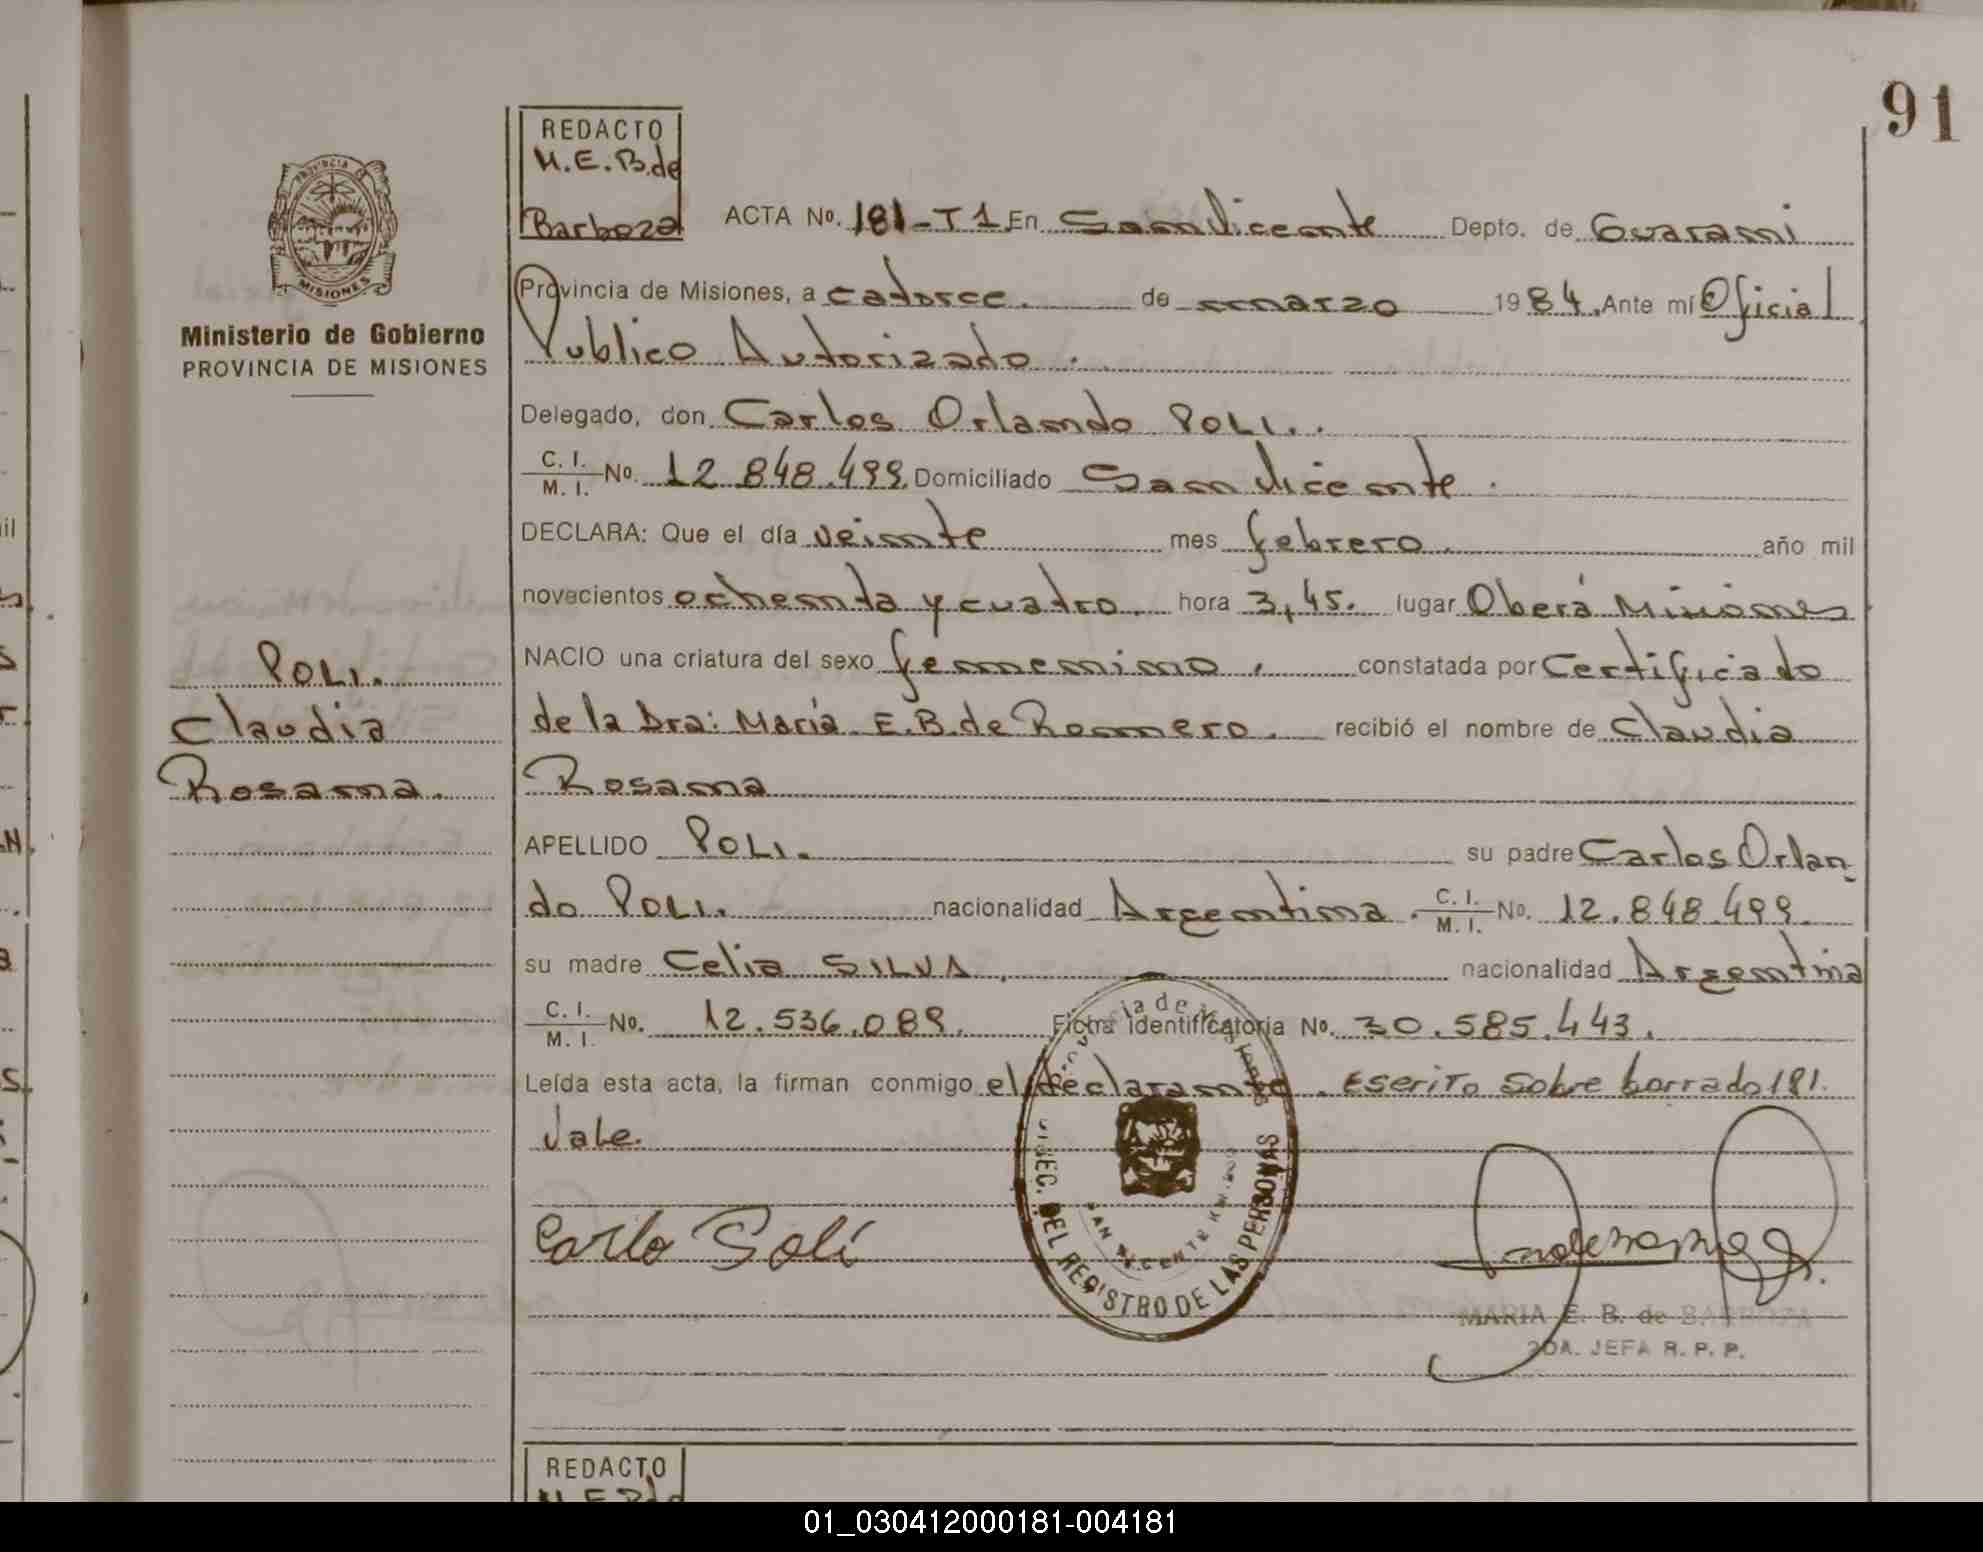 91
REDACTO
M.E.B.de
Barboza
PROVINCIA DE
MISIONES
Ministerio de Gobierno
PROVINCIA DE MISIONES
ACTA No. 181-T1 En San Vicente Depto. de Guarani
Provincia de Misiones, a catorce. de marzo 1984. Ante mí Oficial
Publico Autorizado.
Delegado, don Carlos Orlando POLI.
C. I. / M. I. No. 12.848.499. Domiciliado San Vicente.
DECLARA: Que el día veinte mes febrero. año mil
novecientos ochenta y cuatro. hora 3,45. lugar Oberá Misiones
NACIO una criatura del sexo femenino. constatada por Certificado
de la Dra: María E.B.de Romero. recibió el nombre de Claudia
Rosana
APELLIDO POLI. su padre Carlos Orlan-
do POLI. nacionalidad Argentina. C. I. / M. I. No. 12.848.499.
su madre Celia SILVA. nacionalidad Argentina
C. I. / M. I. No. 12.536.089. Ficha Identificatoria No. 30.585.443.
Leída esta acta, la firman conmigo el declarante. Escrito sobre borrado 181.
Vale.
POLI.
Claudia
Rosana.
DEL REGISTRO DE LAS PERSONAS
SAN VICENTE
MARIA E. B. de BARBOZA
2DA. JEFA R. P. P.
REDACTO
01_030412000181-004181